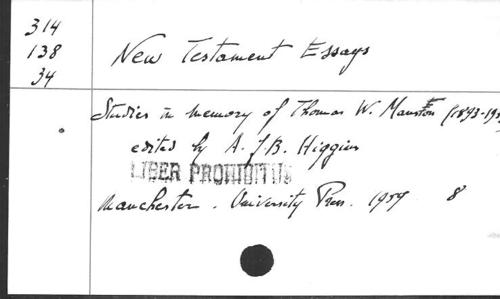 314
138
34
New Testament Essays
Studies in memory of Thomas W. Manson (1893-195
edited by A. J. B. Higgins
LIBER PROHIBITUS
Manchester. University Press. 1959 8